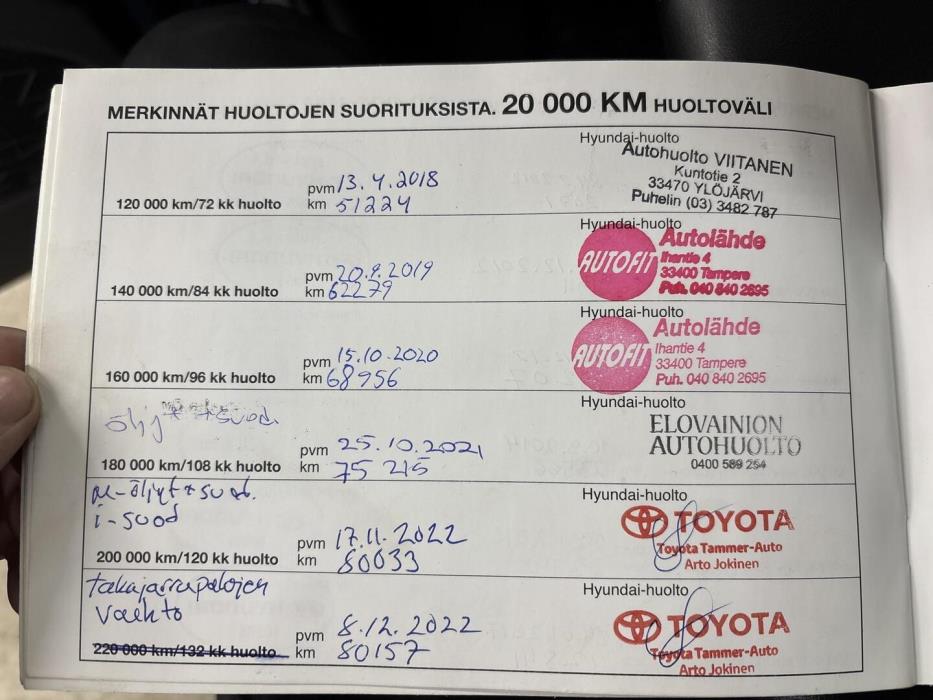 MERKINNÄT HUOLTOJEN SUORITUKSISTA. 20 000 KM HUOLTOVÄLI
Hyundai-huolto
Autohuolto VIITANEN
Kuntotie 2
33470 YLÖJÄRVI
Puhelin (03) 3482 787
pvm 13.4.2018
120 000 km/72 kk huolto km 51224
Hyundai-huolto
AUTOFIT Autolähde
Ihantie 4
33400 Tampere
Puh. 040 840 2695
pvm 20.9.2019
140 000 km/84 kk huolto km 62279
Hyundai-huolto
AUTOFIT Autolähde
Ihantie 4
33400 Tampere
Puh. 040 840 2695
pvm 15.10.2020
160 000 km/96 kk huolto km 68956
Hyundai-huolto
ELOVAINION
AUTOHUOLTO
0400 589 254
öljyt +suod.
pvm 25.10.2021
180 000 km/108 kk huolto km 75 215
Hyundai-huolto
TOYOTA
Toyota Tammer-Auto
Arto Jokinen
m-öljyt + suod.
i-suod
pvm 17.11.2022
200 000 km/120 kk huolto km 80033
Hyundai-huolto
TOYOTA
Toyota Tammer-Auto
Arto Jokinen
takajarrupalojen
vaihto
pvm 8.12.2022
220 000 km/132 kk huolto km 80157